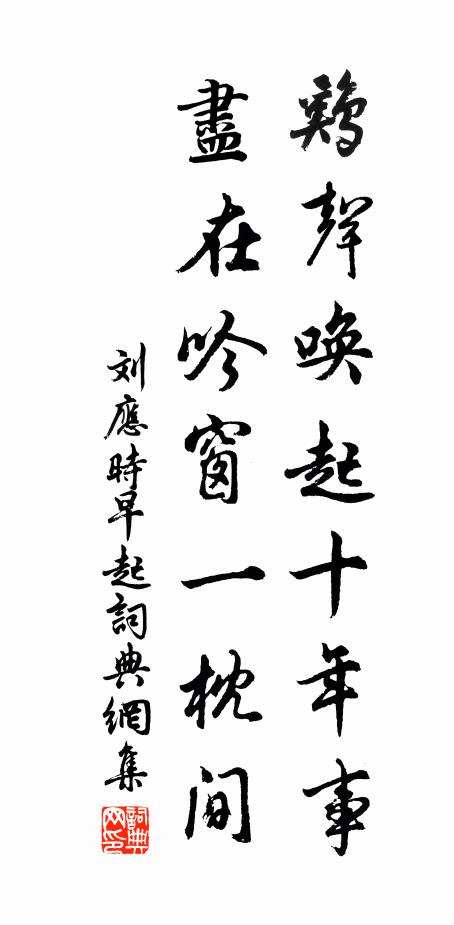 鷄聲喚起十年事
盡在吟窗一枕间
刘應時早起詞典網集
詞典网印